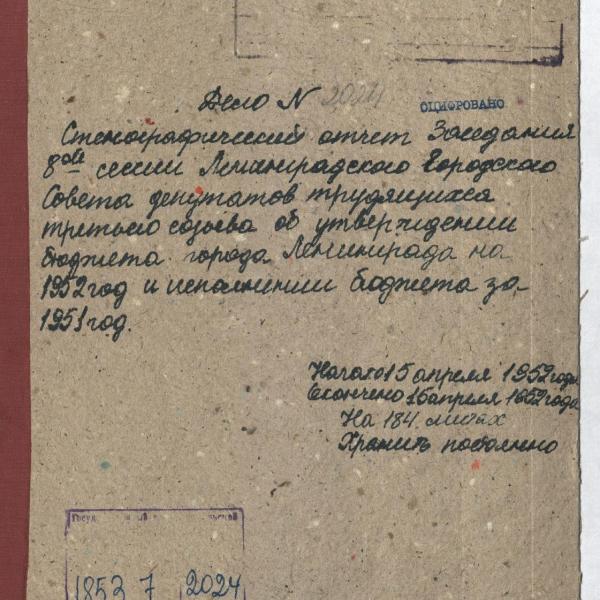 Дело N 2024
ОЦИФРОВАНО
Стенографический отчет Заседания
8ой сессии Ленинградского Городского
Совета депутатов трудящихся
третьего созыва об утверждении
бюджета города Ленинграда на
1952 год и исполнении бюджета за
1951 год.
Начато 15 апреля 1952 года
Окончено 16 апреля 1952 года
На 184 листах
Хранить постоянно
1853 7 2024